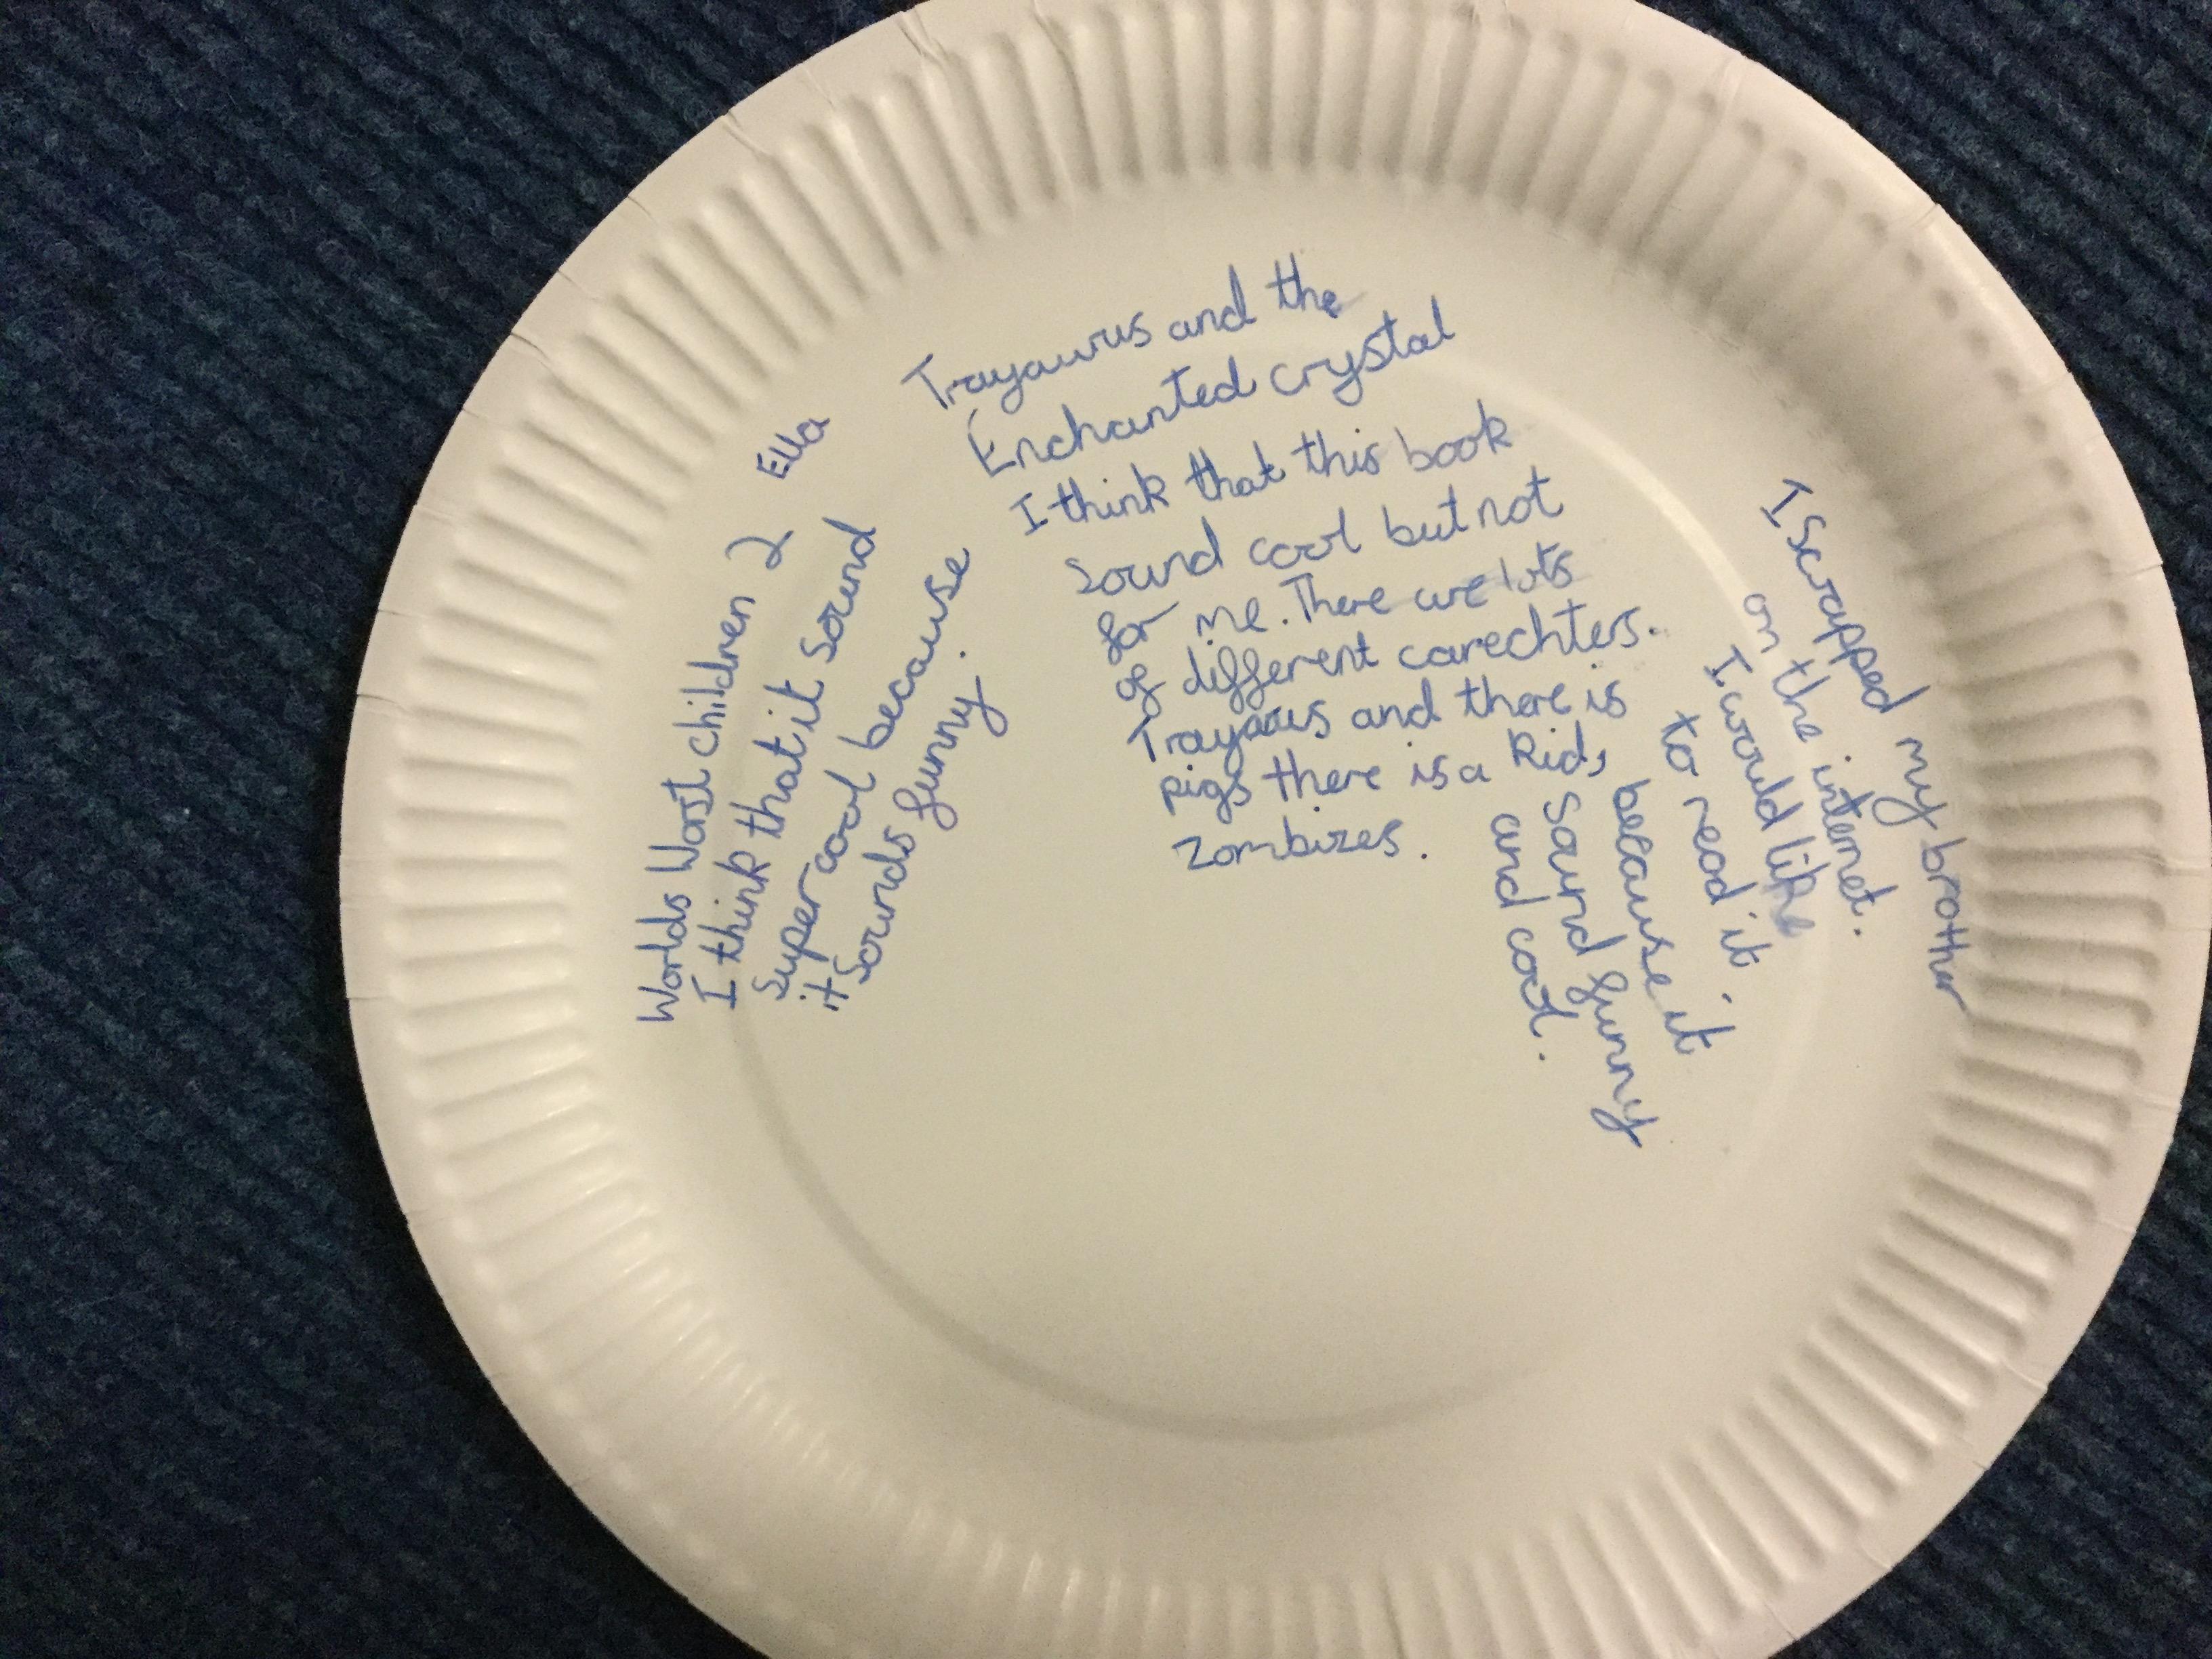 Worlds Worst children 2 Ella
I think that it sound
super cool because
it sounds funny.
Trayaurus and the
Enchanted crystal
I think that this book
sound cool but not
for me. There are lots
of different carechters.
Trayaarus and there is
pigs there is a kid,
zombizes.
I Scrapped my brother
on the internet.
I would like
to read it
because it
sound funny
and cool.